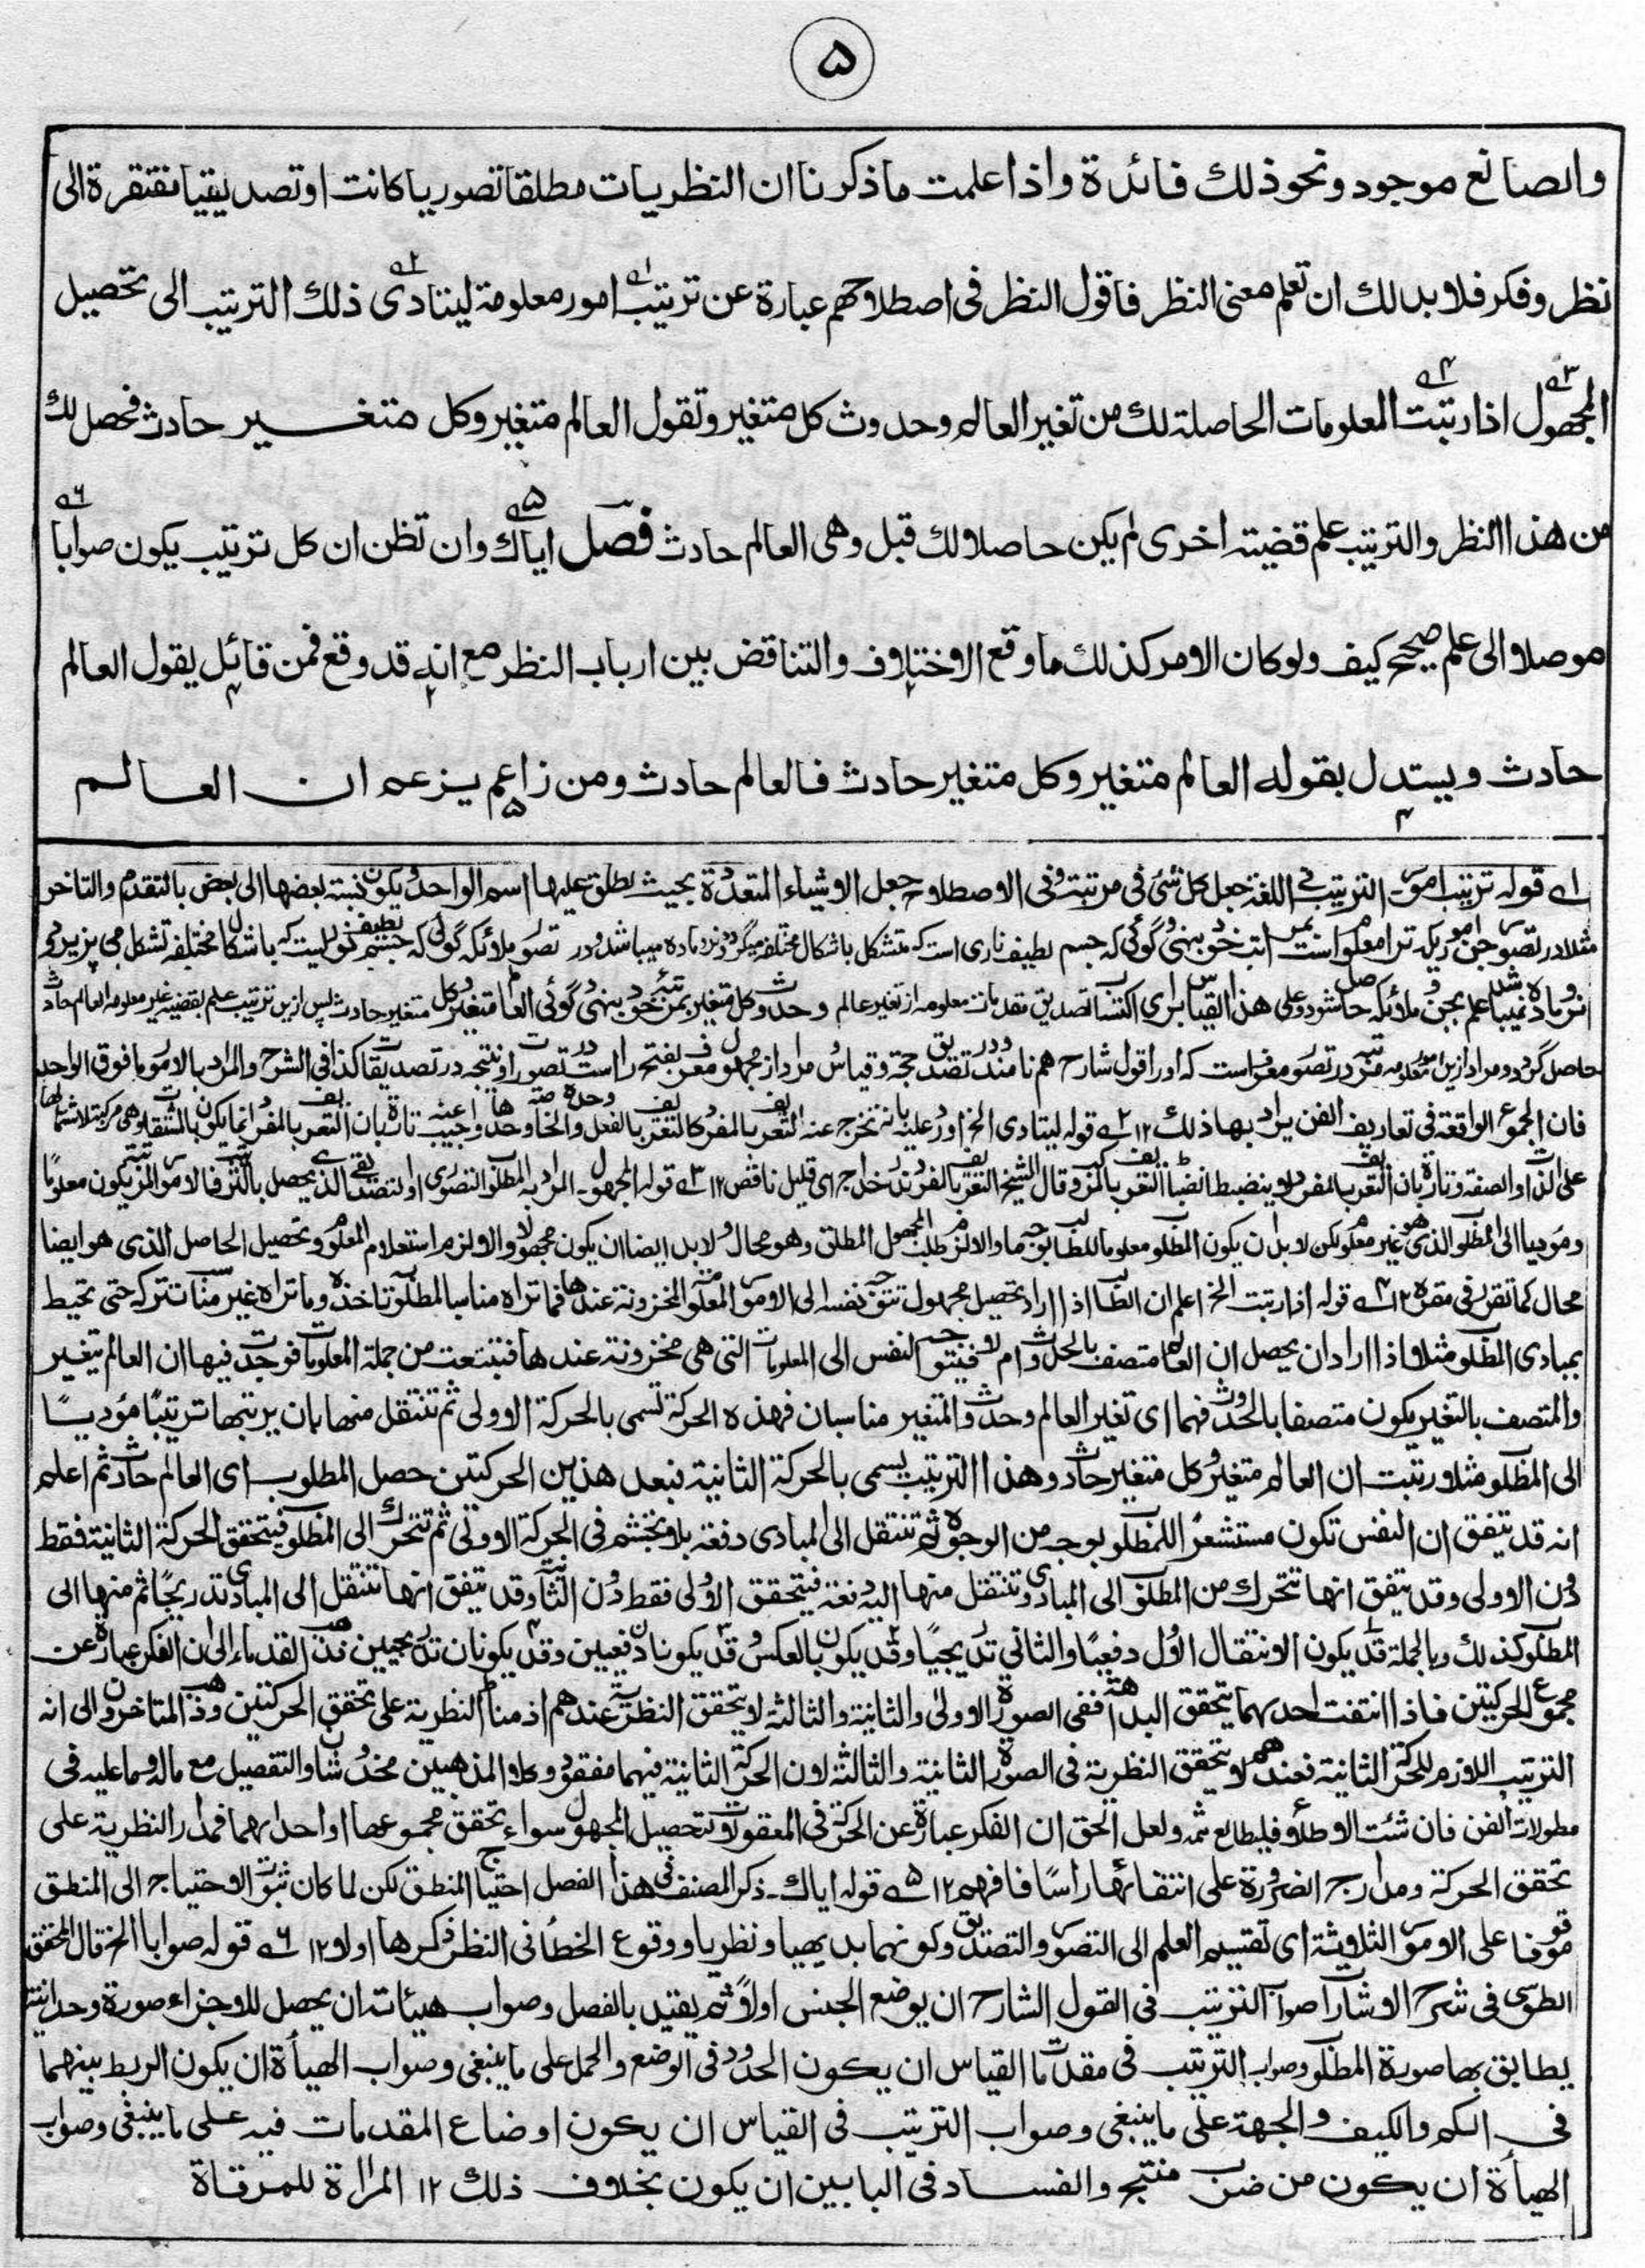 ۵
والصانع موجود ونحو ذلك فائدة واذا علمت ما ذكرنا ان النظريات مطلقا تصوريا كانت او تصديقيا مفتقرة الى
نظر وفكر فلا بد لك ان تعلم معنى النظر فاقول النظر فى اصطلاحهم عبارة عن ترتيب امور معلومة ليتادى ذلك الترتيب الى تحصيل
المجهول اذا رتبت المعلومات الحاصلة لك من تغير العالم وحدوث كل متغير وتقول العالم متغير وكل متغير حادث فحصل لك
من هذا النظر والترتيب علم قضية اخرى لم يكن حاصلا لك قبل وهى العالم حادث فصل اياك وان تظن ان كل ترتيب يكون صوابا
موصلا الى علم صحيح كيف ولو كان الامر كذلك ما وقع الاختلاف والتناقض بين ارباب النظر مع انه قد وقع فمن قائل يقول العالم
حادث ويستدل بقوله العالم متغير وكل متغير حادث فالعالم حادث ومن زاعم يزعم ان العالم
۱ قوله ترتيب امور۔ الترتيب فى اللغة جعل كل شئ فى مرتبته وفى الاصطلاح جعل الاشياء المتعددة بحيث يطلق عليها اسم الواحد ويكون نسبة بعضها الى بعض بالتقدم والتاخر
مثلا در تصور جن اموريكه ترا معلوم است بمرتبه خود بنهى وگوئى كه جسم لطيف نارى است كه متشكل باشكال مختلفه ميگردد نر وماده ميباشد ودر تصور ملائكه گوئى كه جسم لطيف نوريست كه باشكال مختلفه تشكل مى پزيرد و
نر وماده نميباشد علم بجن وملائكه حاصل شود وعلى هذا القياس براى اكتساب تصديق مقدمات معلومه از تغير عالم وحدوث كل متغير بمرتبه خود بنهى وگوئى العالم متغير وكل متغير حادث پس ازين ترتيب علم بقضيه غير معلومه العالم حادث
حاصل گردد ومراد ازين امور معلومه مرتبه در تصور معرف است كه او را قول شارح هم نامند ودر تصديق حجة وقياس مراد از مجهول معرف بفتح را است در تصورات ونتيجه در تصديقات كذا فى الشرح والمراد بالامور ما فوق الواحد
فان الجموع الواقعة فى تعاريف الفن يراد بها ذلك ۱۲ ۲ قوله ليتادى الخ اورد عليه بانه تخرج عنه التعريف بالمفرد كالتعريف بالفعل والخاصة وحدها واجيب عنه تارة بان التعريف بالمفرد انما يكون بالمشتقات وهى مركبة لاشتمالها
على الذات والصفة وتارة بان التعريف بالمفرد لا ينضبط انضباط التعريف بالمركب وقال الشيخ التعريف بالمفرد نزر خداج اى قليل ناقص ۱۲ ۳ قوله المجهول۔ المراد به المطلوب التصورى او التصديقى الذى يحصل بالترتيب فالامور المرتبة يكون معلومًا
ومؤديا الى المطلوب الذى هو غير معلوم لكن لا بد ان يكون المطلوب معلوما للطالب بوجه ما والا لزم طلب المجهول المطلق وهو محال ولا بد ايضا ان يكون مجهولا والا لزم استعلام المعلوم وتحصيل الحاصل الذى هو ايضا
محال كما تقرر فى مقره ۱۲ ۴ قوله اذا رتبت الخ اعلم ان الطالب اذا اراد تحصيل مجهول تتوجه نفسه الى الامور المعلومة المخزونة عندها فما تراه مناسبا للمطلوب تاخذه وما تراه غير مناسب تتركه حتى تحيط
بمبادى المطلوب مثلا اذا اراد ان يحصل ان العالم متصف بالحدوث ام لا فيتوجه النفس الى المعلومات التى هى مخزونة عندها فتتبعت من جملة المعلومات فوجدت فيها ان العالم يتغير
والمتصف بالتغير يكون متصفا بالحدوث فهما اى تغير العالم وحدوث المتغير مناسبان فهذه الحركة تسمى بالحركة الاولى ثم تنتقل منها بان يرتبها ترتيبًا مؤديًا
الى المطلوب مثلا رتبت ان العالم متغير وكل متغير حادث وهذا الترتيب يسمى بالحركة الثانية فبعد هذين الحركتين حصل المطلوب اى العالم حادث ثم اعلم
انه قد يتفق ان النفس تكون مستشعرًا للمطلوب بوجه من الوجوه ثم تنتقل الى المبادى دفعة بلا تجشم فى الحركة الاولى ثم تتحرك الى المطلوب فيتحقق الحركة الثانية فقط
دون الاولى وقد يتفق انها تتحرك من المطلوب الى المبادى وتنتقل منها اليه دفعة فيتحقق الاولى فقط دون الثانية وقد يتفق انها تنتقل الى المبادى تدريجًا ثم منها الى
المطلوب كذلك وبالجملة قد يكون الانتقال الاول دفعيًا والثانى تدريجيًا وقد يكون بالعكس وقد يكونان دفعيين وقد يكونان تدريجيين فذهب القدماء الى ان الفكر عبارة عن
مجموع الحركتين فاذا انتفت احدهما يتحقق البداهة ففى الصورة الاولى والثانية والثالثة لا يتحقق النظرية عندهم اذ مناط النظرية على تحقق الحركتين وذهب المتاخرون الى انه
الترتيب اللازم للحركة الثانية فعندهم لا يتحقق النظرية فى الصورة الثانية والثالثة لان الحركة الثانية فيهما مفقودة وكلا المذهبين مخدوشان والتفصيل مع ماله وما عليه فى
مطولات الفن فان شئت الاطلاع فليطالع ثمه ولعل الحق ان الفكر عبارة عن الحركة فى المعقولات لتحصيل المجهول سواء تحقق مجموعها او احدهما فمدار النظرية على
تحقق الحركة ومدارج الضرورة على انتفائها راسًا فافهم ۱۲ ۵ قوله اياك۔ ذكر المصنف فى هذا الفصل احتياج المنطق لكن لما كان ثبوت الاحتياج الى المنطق
موقوفا على الامور الثلاثة اى تقسيم العلم الى التصور والتصديق وكونهما بديهيا ونظريا ووقوع الخطأ فى النظر ذكرها اولا ۱۲ ۶ قوله صوابا الخ قال المحقق
الطوسى فى شرح الاشارات صواب الترتيب فى القول الشارح ان يوضع الجنس اولًا ثم يقيد بالفصل وصواب هيئاته ان يحصل للاجزاء صورة وحدانية
يطابق بها صورة المطلوب وصواب الترتيب فى مقدمات القياس ان يكون الحدود فى الوضع والحمل على ما ينبغى وصواب الهيأة ان يكون الربط بينهما
فى الكم والكيف والجهة على ما ينبغى وصواب الترتيب فى القياس ان يكون اوضاع المقدمات فيه على ما ينبغى وصواب
الهيأة ان يكون من ضرب منتج والفساد فى البابين ان يكون بخلاف ذلك ۱۲ المرآة للمرقاة